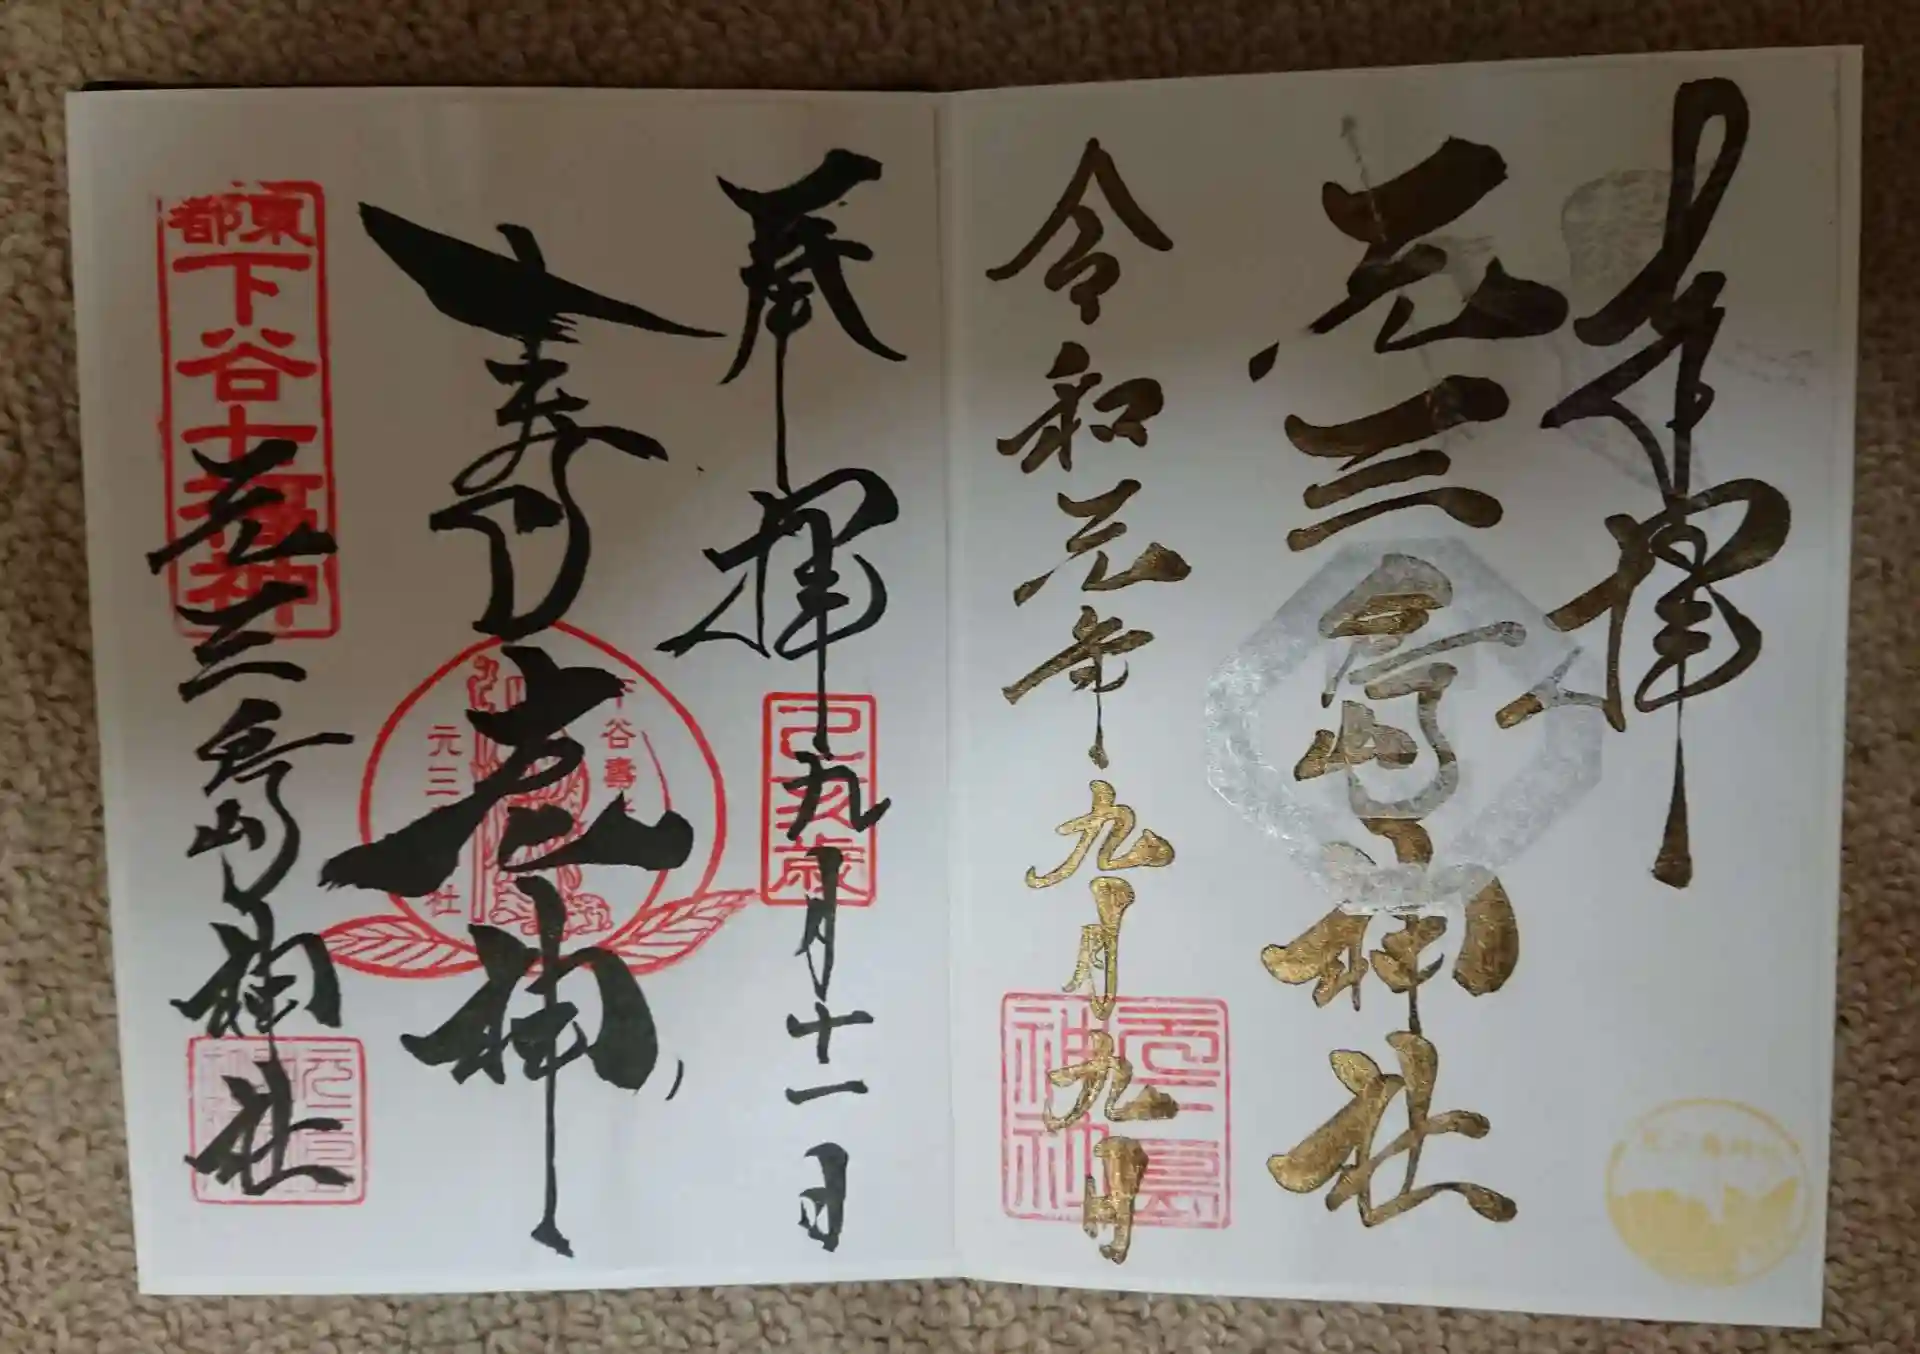 奉拝
元三島神社
令和元年九月九日
元三島神社
奉拝
九月十一日
己亥歳
寿老神
下谷壽
元三
社
東都
下谷七福神
元三島神社